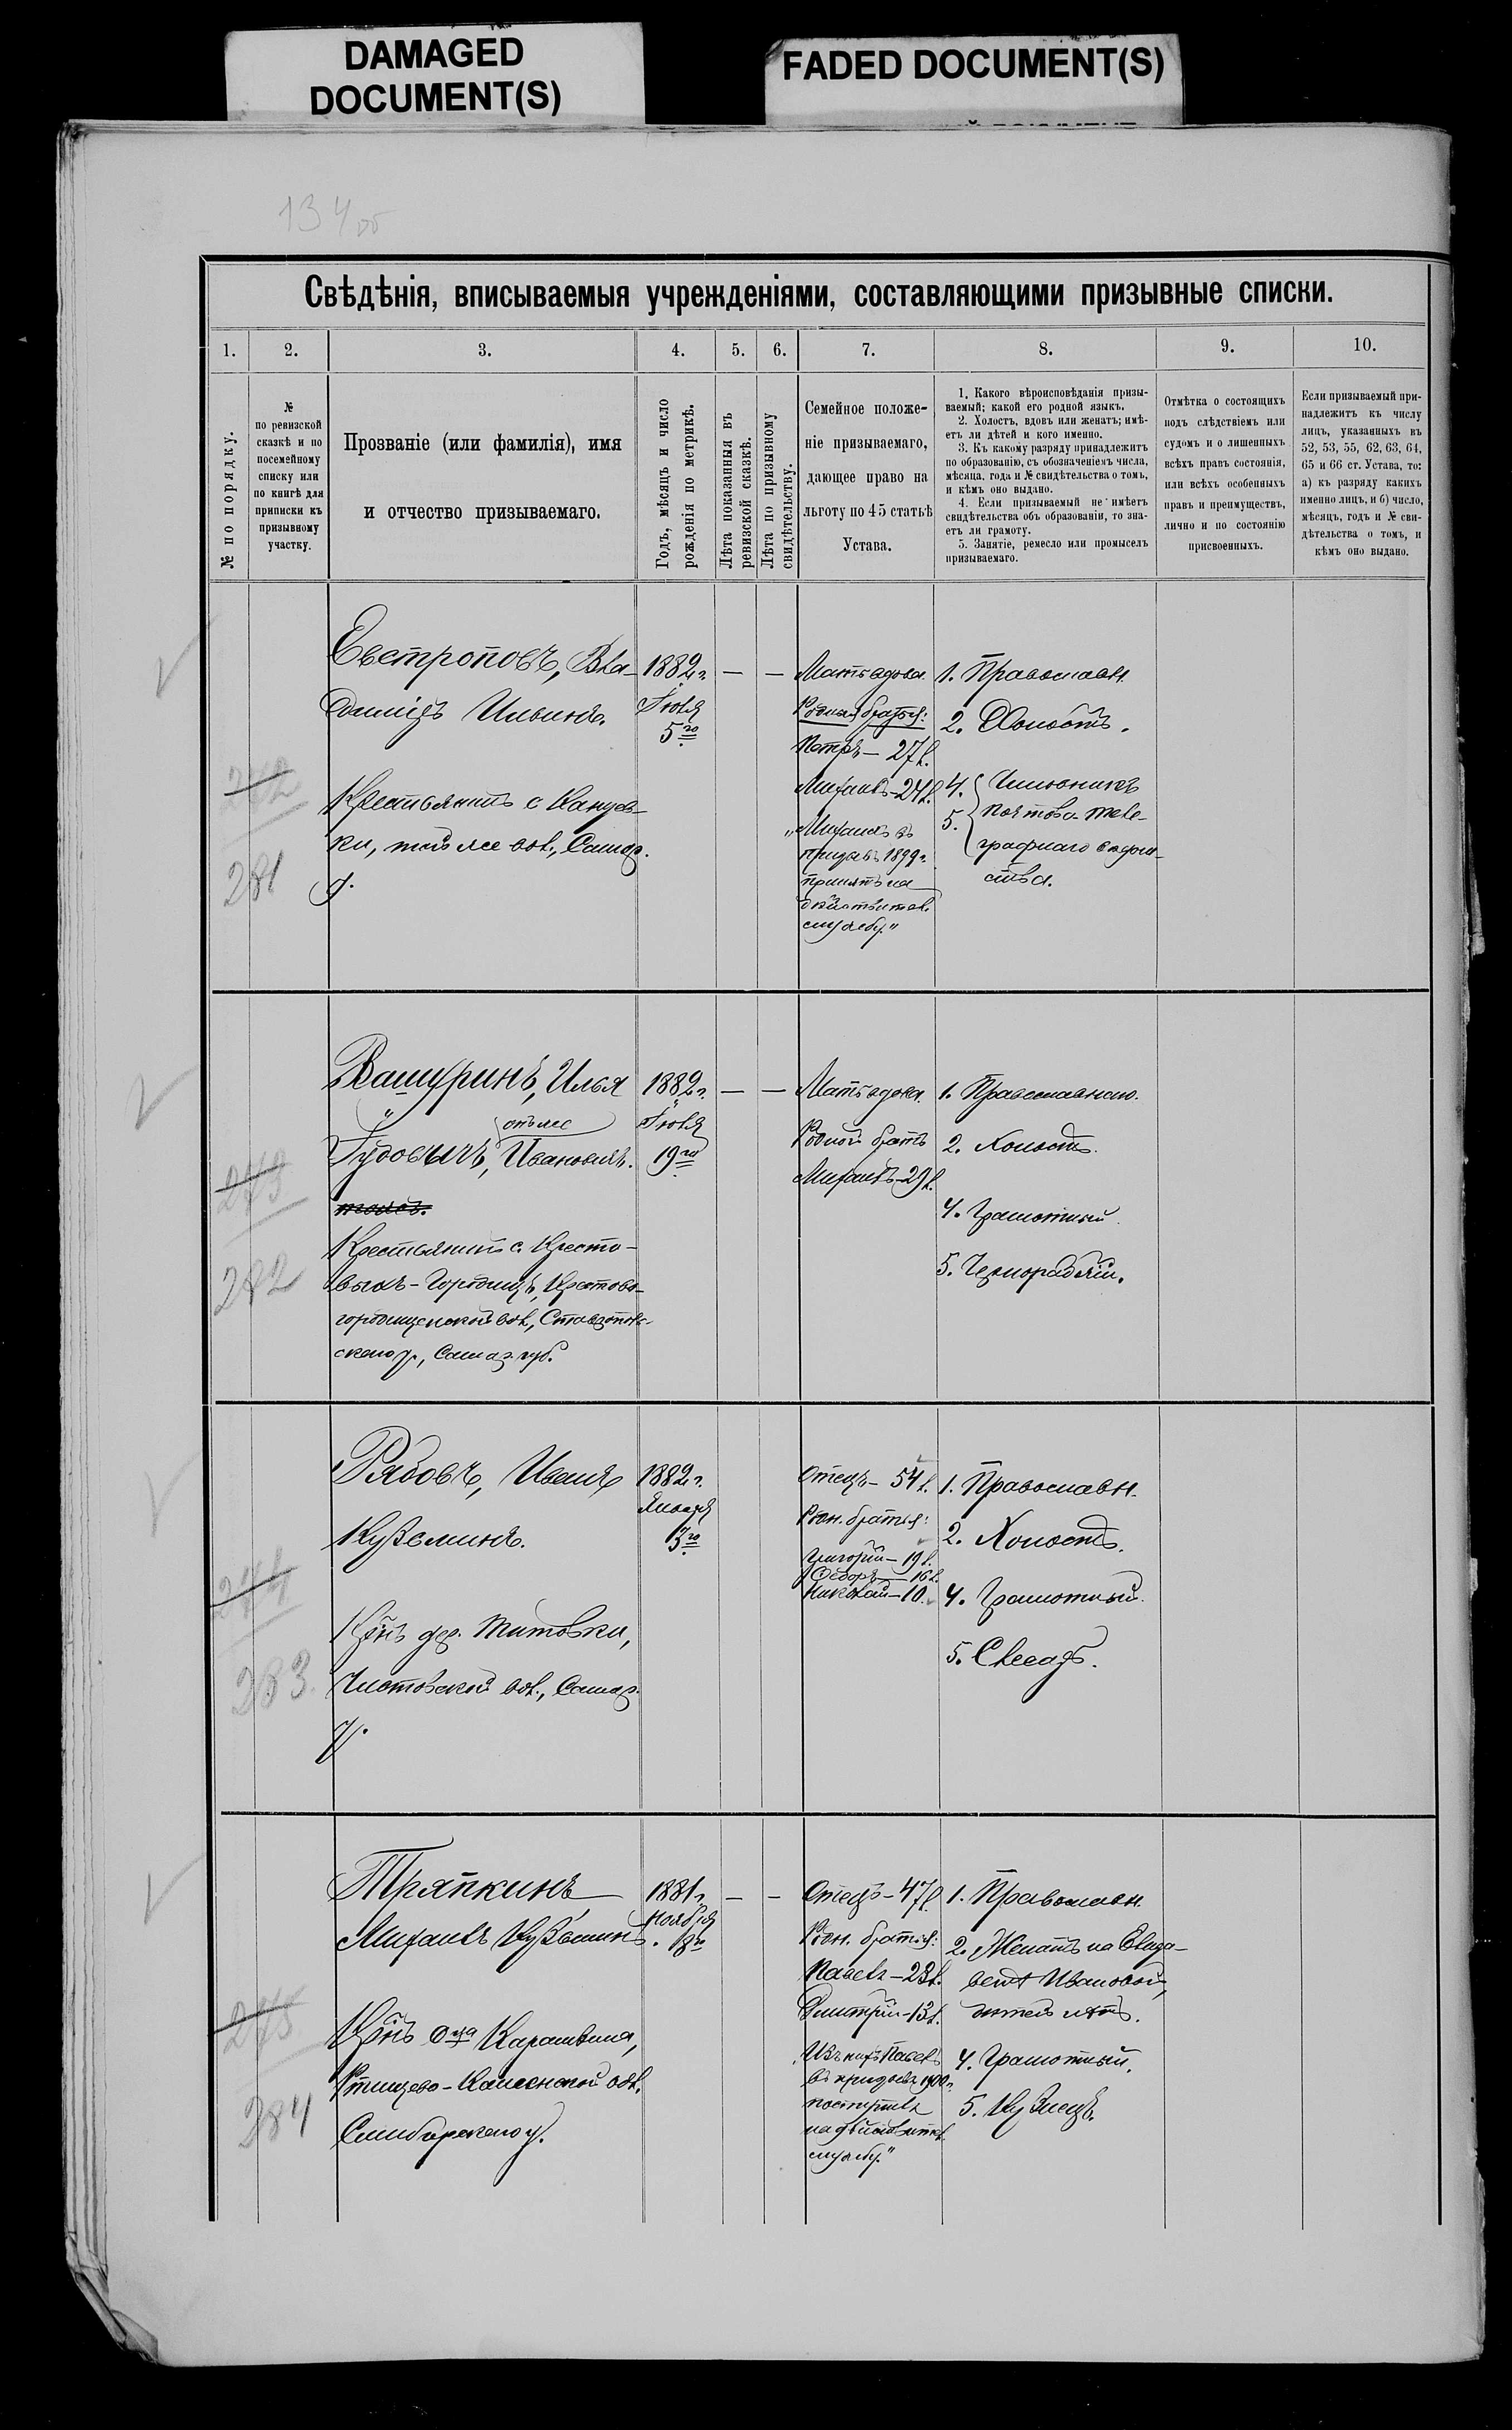 DAMAGED
DOCUMENT(S)
FADED DOCUMENT(S)
134 об
Свѣдѣнія, вписываемыя учрежденіями, составляющими призывные списки.
1. 2. 3. 4. 5. 6. 7. 8. 9. 10.
№ по порядку.
№
по ревизской
сказкѣ и по
посемейному
списку или
по книгѣ для
приписки къ
призывному
участку.
Прозваніе (или фамилія), имя
и отчество призываемаго.
Годъ, мѣсяцъ и число
рожденія по метрикѣ.
Лѣта показанныя въ
ревизской сказкѣ.
Лѣта по призывному
свидѣтельству.
Семейное положе-
ніе призываемаго,
дающее право на
льготу по 45 статьѣ
Устава.
1. Какого вѣроисповѣданія призы-
ваемый; какой его родной языкъ.
2. Холостъ, вдовъ или женатъ; имѣ-
етъ ли дѣтей и кого именно.
3. Къ какому разряду принадлежитъ
по образованію, съ обозначеніемъ числа,
мѣсяца, года и № свидѣтельства о томъ,
и кѣмъ оно выдано.
4. Если призываемый не имѣетъ
свидѣтельства объ образованіи, то зна-
етъ ли грамоту.
5. Занятіе, ремесло или промыселъ
призываемаго.
Отмѣтка о состоящихъ
подъ слѣдствіемъ или
судомъ и о лишенныхъ
всѣхъ правъ состоянія,
или всѣхъ особенныхъ
правъ и преимуществъ,
лично и по состоянію
присвоенныхъ.
Если призываемый при-
надлежитъ къ числу
лицъ, указанныхъ въ
52, 53, 55, 62, 63, 64,
65 и 66 ст. Устава, то:
а) къ разряду какихъ
именно лицъ, и б) число,
мѣсяцъ, годъ и № сви-
дѣтельства о томъ, и
кѣмъ оно выдано.
272
281
Евстроповъ, Вла-
диміръ Ильинъ.
Крестьянинъ с. Кануев-
ки, той же вол., Самар.
у.
1882 г.
Іюля
5го
— —
Мать вдова.
Родные братья:
Петръ — 27 л.
Михаилъ - 24 л.
„Михаилъ въ
призывъ 1899 г.
принятъ на
дѣйствител.
службу."
1. Православн.
2. Холостъ.
4.
5.
Чиновникъ
почтово-теле-
графнаго вѣдом-
ства.
273
282
Вашуринъ, Илья
онъ же
Гудовичъ, Ивановичъ.
Крестьянинъ с. Кресто-
выхъ-Городищъ, Крестово-
городищенской вол., Ставрополь-
скаго у., Самар. губ.
1882 г.
Іюля
19го
— —
Мать вдова.
Родной братъ
Михаилъ - 29 л.
1. Православнаго.
2. Холостъ.
4. Грамотный.
5. Чернорабочій.
274
283.
Рябовъ, Иванъ
Кузьминъ.
Кр-нъ дер. Титовки,
Чистовской вол., Самар.
у.
1882 г.
Января
3го
Отецъ - 54 л.
Родн. братья:
Григорій - 19 л.
Ѳедоръ — 16 л.
Николай - 10.
1. Православн.
2. Холостъ.
4. Грамотный.
5. Слесарь.
275
284
Тряпкинъ
Михаилъ Кузьминъ.
Кр-нъ с-ца Карамзина,
Ртищево-Каменской вол.
Симбирскаго у.
1881 г.
Ноября
18го
— —
Отецъ - 47 л.
Родн. братья:
Павелъ - 23 л.
Дмитрій - 13 л.
„Изъ нихъ Павелъ
въ призывъ 1900 г.
поступилъ
на дѣйствител.
службу."
1. Православн.
2. Женатъ на Елиза-
ветѣ Ивановой,
дѣтей нѣтъ.
4. Грамотный.
5. Кузнецъ.